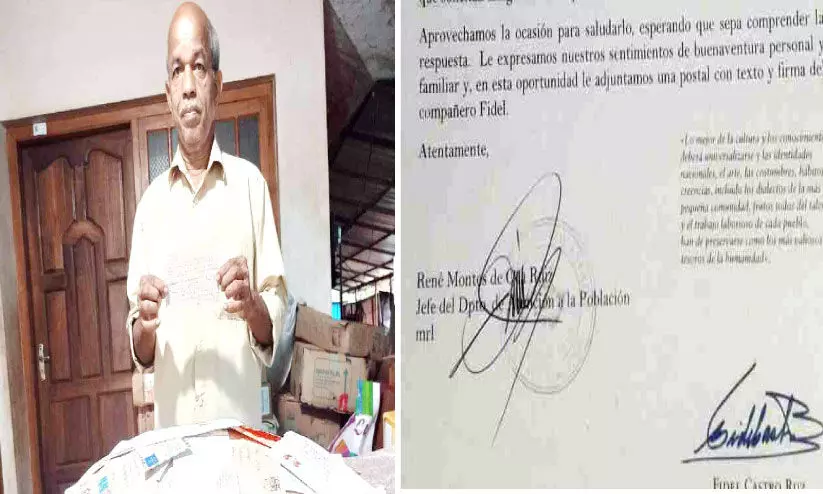 Aprovechamos la ocasión para saludarlo, esperando que sepa comprender la
respuesta. Le expresamos nuestros sentimientos de buenaventura personal y
familiar y, en esta oportunidad le adjuntamos una postal con texto y firma de
compañero Fidel.
Atentamente,
«Lo mejor de la cultura y los conocimient
deberá universalizarse y las identidades
nacionales, el arte, las costumbres, hábitos
creencias, incluida los dialectos de la más
pequeña comunidad, frutos todos del tale
y el trabajo laborioso de cada pueblo,
han de preservarse como los más valiosos
tesoros de la humanidad».
René Montes de Oca Ruiz
Jefe del Dpto. de Atención a la Población
mrl
FIDEL CASTRO RUZ